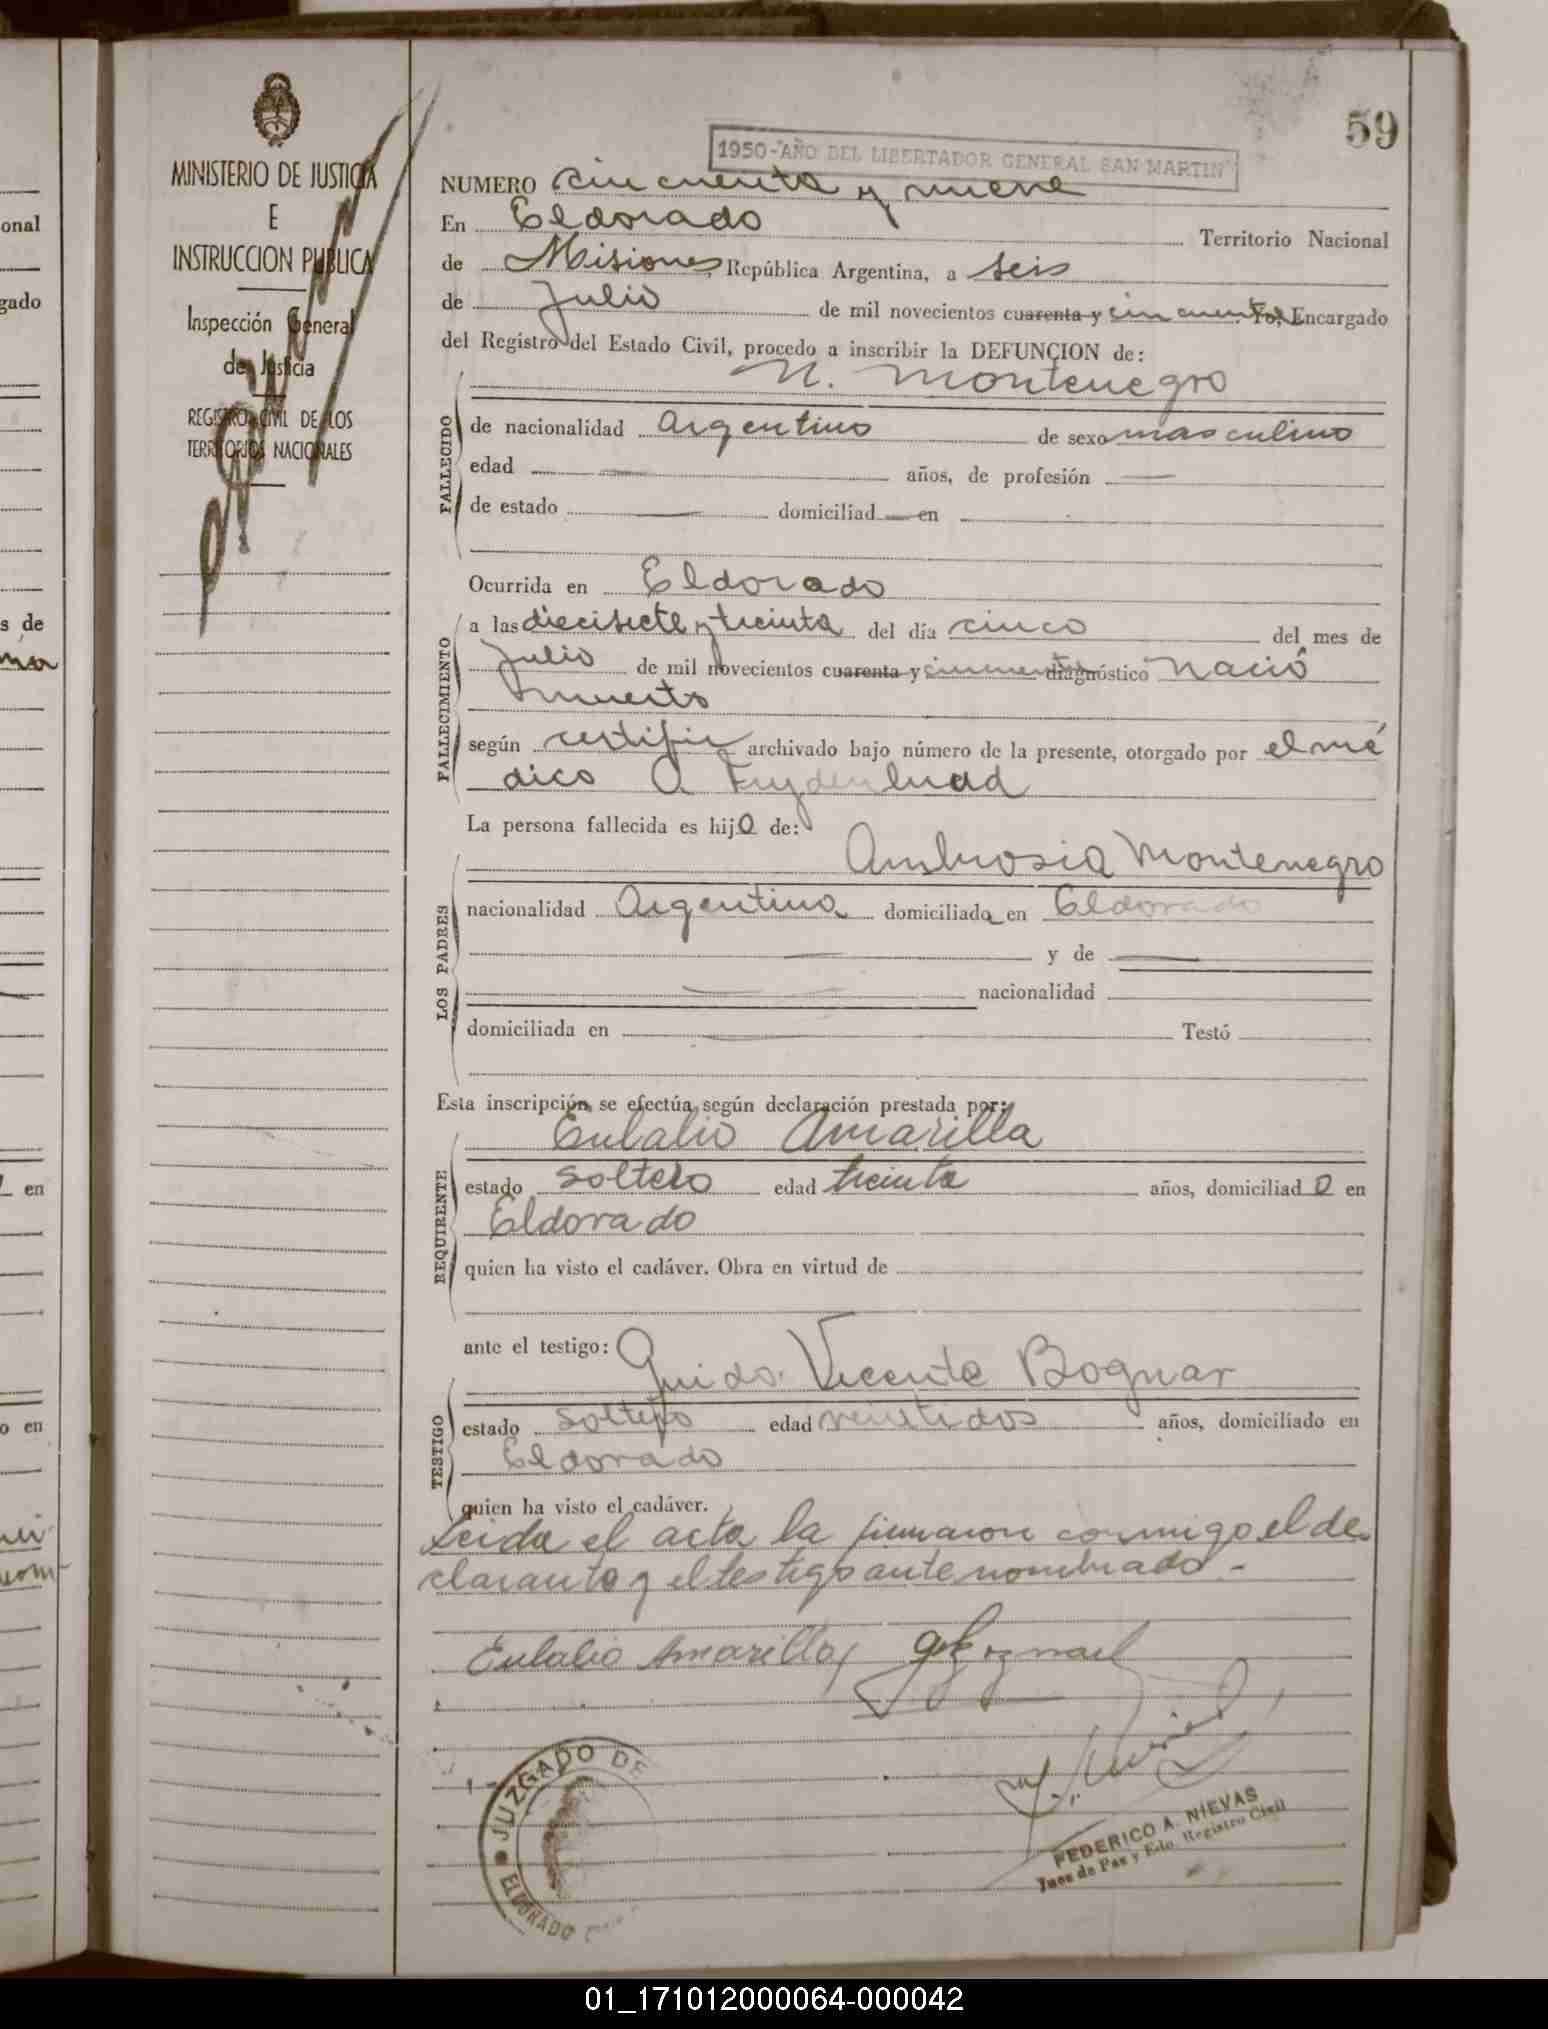 59
1950-"AÑO DEL LIBERTADOR GENERAL SAN MARTIN"
MINISTERIO DE JUSTICIA
E
INSTRUCCION PUBLICA
Inspección General
de Justicia
REGISTRO CIVIL DE LOS
TERRITORIOS NACIONALES
NUMERO cincuenta y nueve
En Eldorado Territorio Nacional
de Misiones República Argentina, a seis
de Julio de mil novecientos cuarenta y cincuenta Yo, Encargado
del Registro del Estado Civil, procedo a inscribir la DEFUNCION de:
N. Montenegro
FALLECIDO
de nacionalidad Argentino de sexo masculino
edad — años, de profesión —
de estado — domiciliad — en
Ocurrida en Eldorado
FALLECIMIENTO
a las diecisiete y treinta del día cinco del mes de
Julio de mil novecientos cuarenta y cincuenta diagnóstico Nació
muerto
según certific archivado bajo número de la presente, otorgado por el mé
dico A
La persona fallecida es hijo de:
LOS PADRES
Ambrosia Montenegro
nacionalidad Argentina domiciliada en Eldorado
— y de —
— nacionalidad
domiciliada en — Testó
Esta inscripción se efectúa según declaración prestada por:
REQUIRENTE
Eulalio Amarilla
estado soltero edad treinta años, domiciliado en
Eldorado
quien ha visto el cadáver. Obra en virtud de
ante el testigo: Guido Vicente Bognar
TESTIGO
estado soltero edad veintidos años, domiciliado en
Eldorado
quien ha visto el cadáver.
Leida el acta la firmaron conmigo el de-
clarante y el testigo ante nombrado.-
Eulalio Amarilla
JUZGADO DE
ELDORADO
FEDERICO A. NIEVAS
Juez de Paz y Edo. Registro Civil
onal
gado
s de
en
o en
01_171012000064-000042